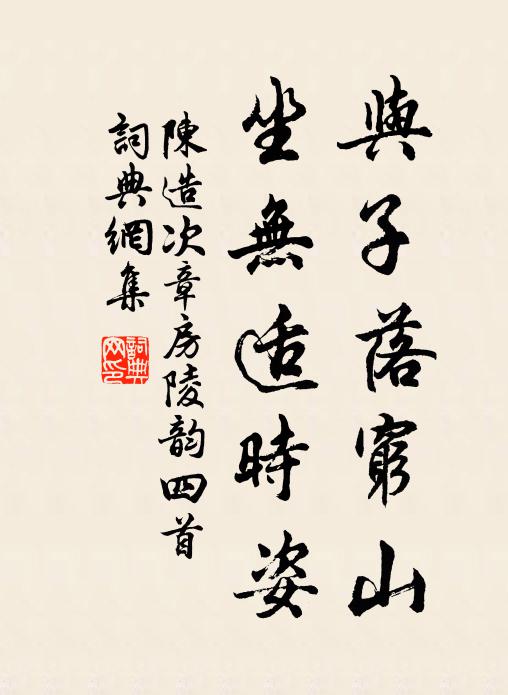 與子落窮山
坐無适時姿
陳造次章房陵韵四首
詞典網集
詞典
网印